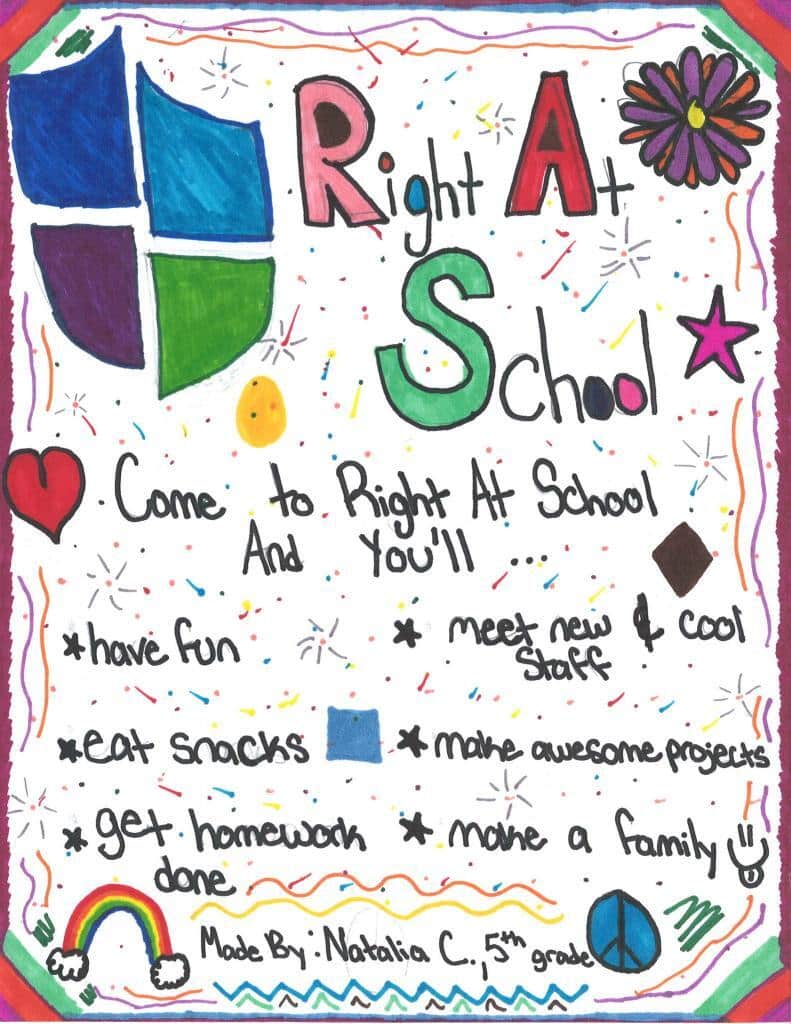 Right At
School
Come to Right At School
And You'll ...
*have fun
* meet new & cool
staff
*eat snacks
* make awesome projects
* get homework
done
* make a family
Made By: Natalia C., 5th grade